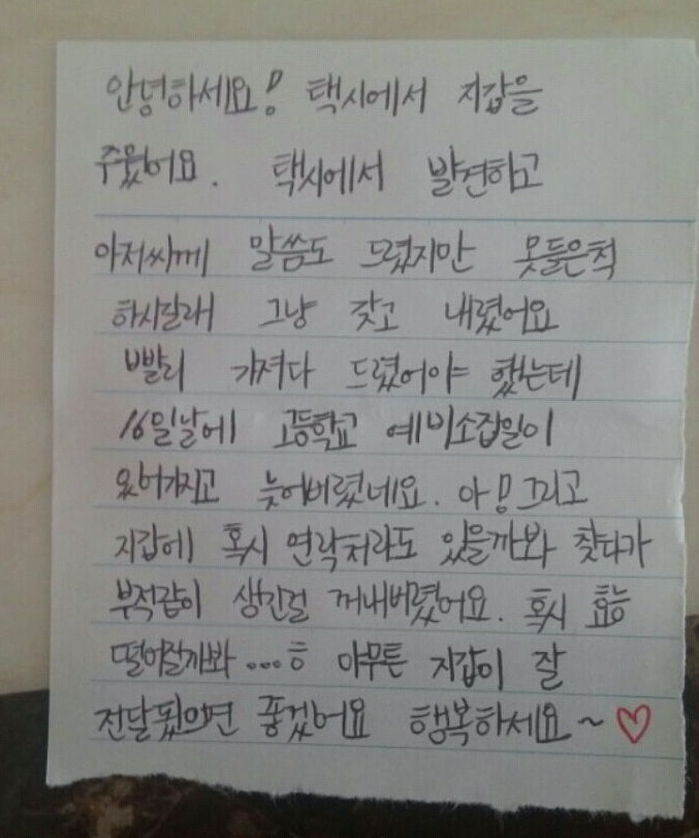 안녕하세요! 택시에서 지갑을
주웠어요. 택시에서 발견하고
아저씨께 말씀도 드렸지만 못들은척
하시달래 그냥 갖고 내렸어요
빨리 가져다 드렸어야 했는데
16일날에 고등학교 예비소집일이
있어가지고 늦어버렸네요. 아! 그리고
지갑에 혹시 연락처라도 있을까봐 찾다가
부적같이 생긴걸 꺼내버렸어요. 혹시 효능
떨어질까봐 ...ㅎ 아무튼 지갑이 잘
전달됬으면 좋겠어요 행복하세요~♡